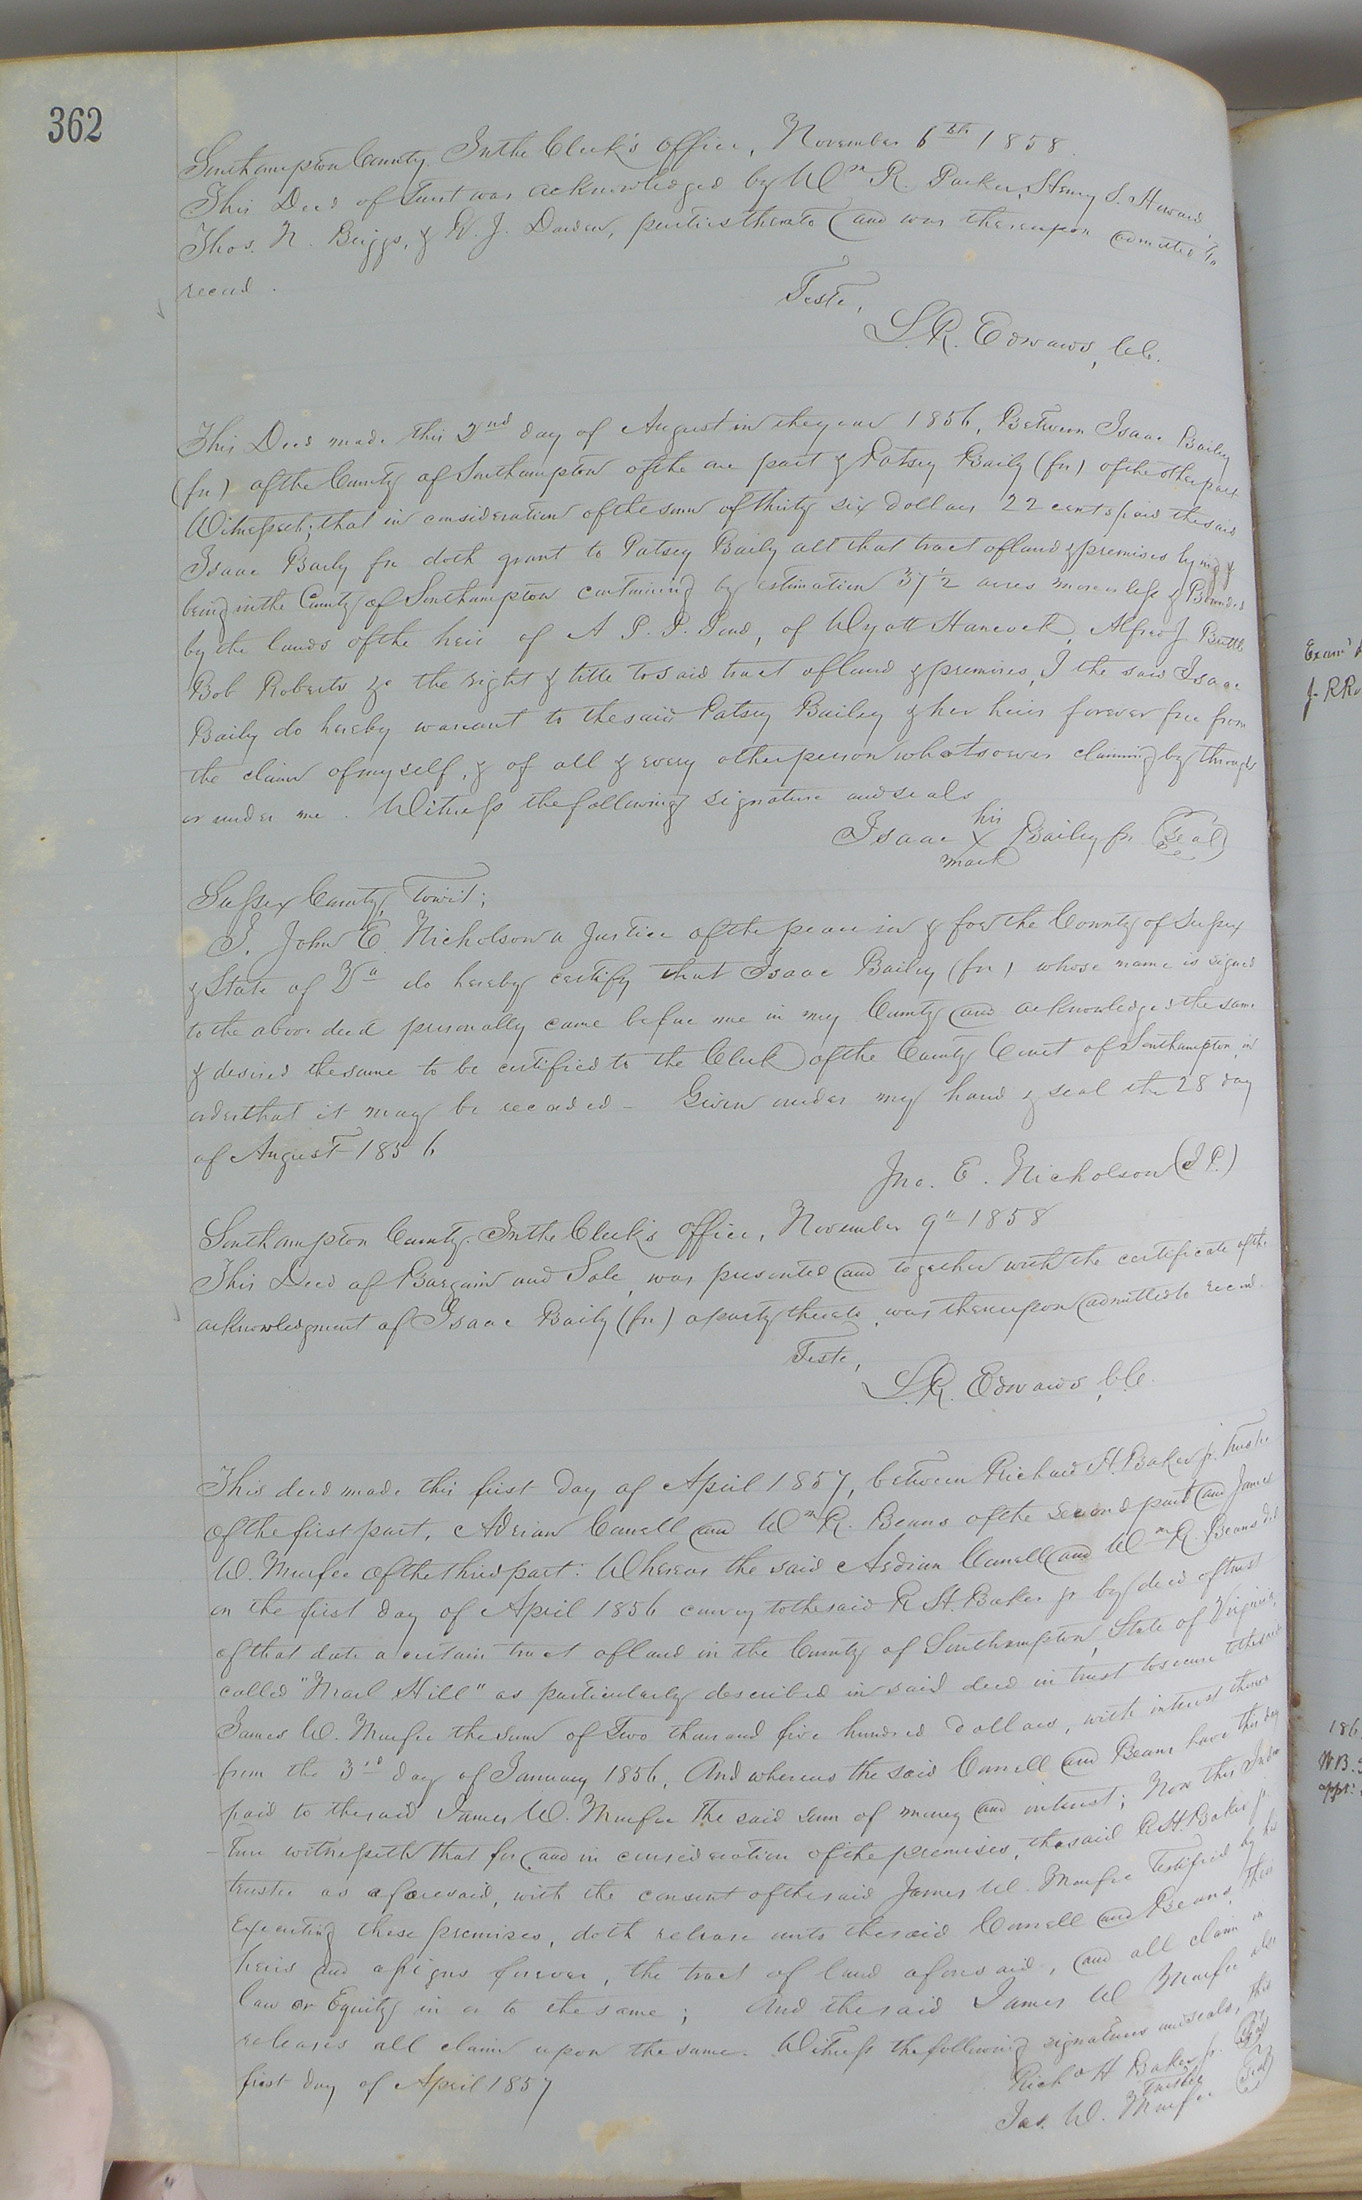 362
Southampton County. In the Clerk's office, November 6th 1858.
This Deed of Trust was acknowledged by Wm R. Parker, Henry S. Howard,
Thos. N. Briggs, & W. J. Darden, parties thereto and was thereupon admitted to
record.
Teste,
L. R. Edwards, CC.
This Deed made this 2nd day of August in the year 1856, Between Isaac Bailey
(fn) of the County of Southampton of the one part & Patsey Baily (fn) of the other part
Witnesseth; that in consideration of the sum of thirty six dollars 22 cents paid the said
Isaac Baily fn doth grant to Patsey Baily all that tract of land & premises lying &
being in the County of Southampton containing by estimation 37 1/2 acres more or less & Bounded
by the lands of the heirs of A P. P. Pond, of Wyatt Hancock, Alfred J Buttle
Bob Roberts &c the right & title to said tract of land & premises, I the said Isaac
Baily do hereby warrant to the said Patsey Bailey & her heirs forever free from
the claim of myself, & of all & every other person whatsoever claiming by through
or under me. Witness the following signature and seals
his
Isaac X Bailey fn (Seal)
mark
Sussex County, Towit;
I, John E. Nicholson a Justice of the peace in & for the County of Sussex
& State of Va do hereby certify that Isaac Bailey (fn) whose name is signed
to the above deed personally came before me in my County and acknowledged the same
& desired the same to be certified to the Clerk of the County Court of Southampton in
order that it may be recorded - Given under my hand & seal the 28 day
of August 1856
Jno. E. Nicholson (J.P.)
Southampton County. In the Clerk's office, November 9" 1858
This Deed of Bargain and Sale, was presented and together with the certificate of the
acknowledgment of Isaac Baily (fn) a party thereto, was thereupon admitted to record.
Teste,
L. R. Edwards, CC.
This deed made this first day of April 1857, between Richard H. Baker jr. Trustee
of the first part, Adrian Carrell and Wm R. Beans of the second part and James
W. Murfee of the third part: Whereas the said Adrian Carrell and Wm R. Beans did
on the first day of April 1856 convey to the said R. H. Baker jr by deed of trust
of that date a certain tract of land in the County of Southampton, State of Virginia,
called "Marl Hill" as particularly described in said deed in trust to secure to the said
James W. Murfee the sum of Two thousand five hundred dollars, with interest thereon
from the 3rd day of January 1856, And whereas the said Carrell and Beans have this day
paid to the said James W. Murfee the said sum of money and interest; Now this Inden
ture witnesseth that for and in consideration of the premises, the said R. H. Baker jr
trustee as aforesaid, with the consent of the said James W. Murfee testified by his
executing these premises, doth release unto the said Carrell and Beans, their
heirs and assigns forever, the tract of land aforesaid, and all claim in
law or Equity in or to the same; And the said James W Murfee also
releases all claim upon the same. Witness the following signatures and seals, this
first day of April 1857
Richd H Baker jr. (Seal)
Trustee
Jas. W. Murfee (Seal)
Examd
J. R
186
W.B.
appt.